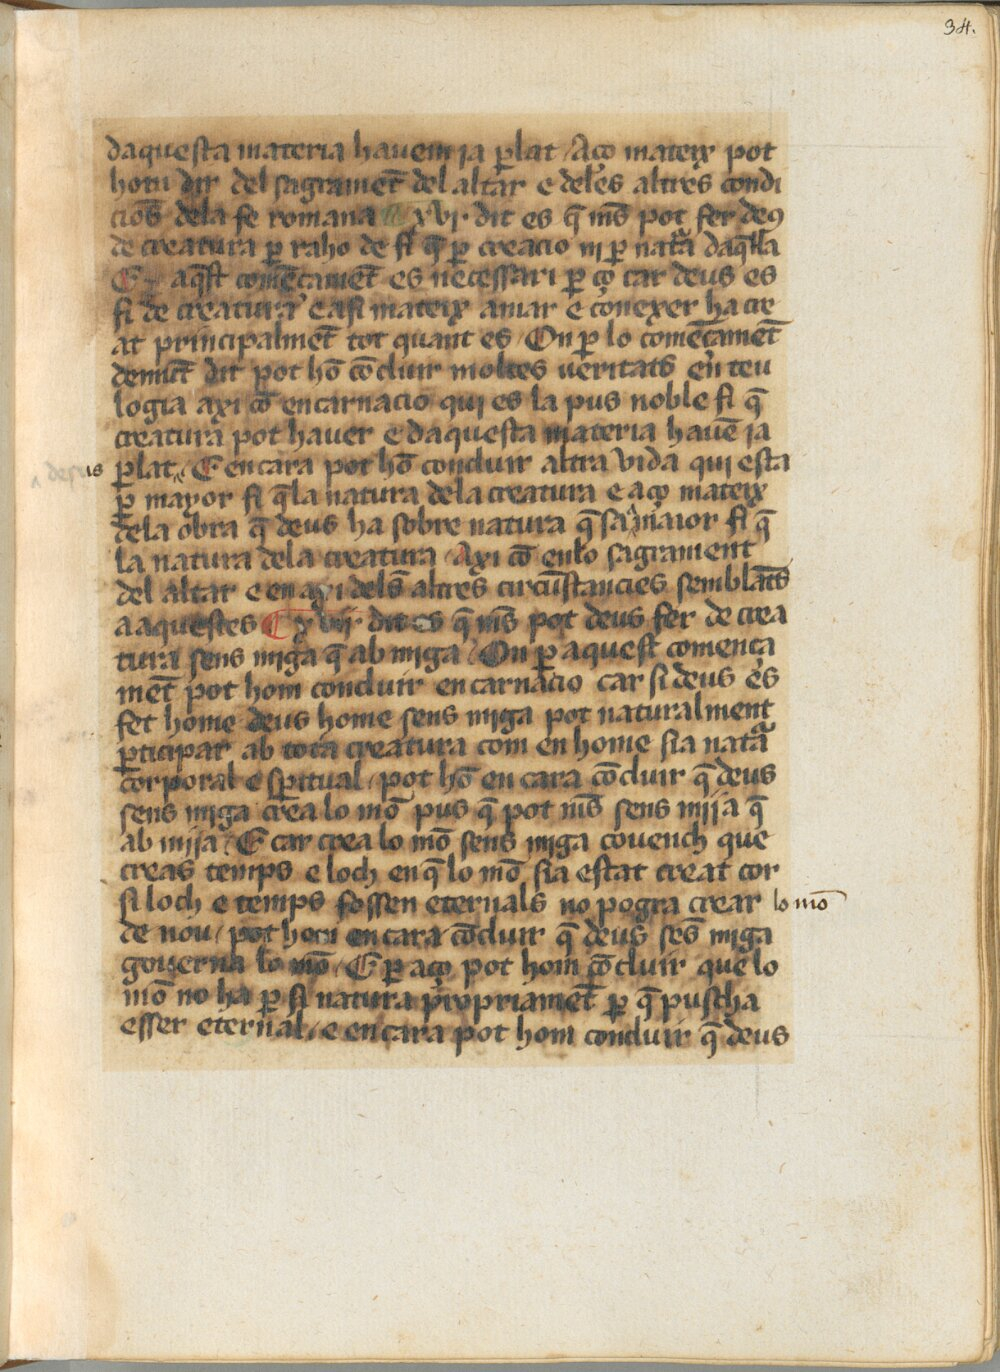 34.
daquesta materia hauem ja p̲lat / Aço mateix pot
hom dir del sagramēt del altar e deles altres condi
cions dela fe romana ¶ xvi· dit es q̄ mes pot fer deꝰ
de creatura p̲ raho de fi q̄ p̲ creacio ni p̲ natᵃ daq̄lla
E aq̄st comēcamēt es necessari p̲ ço car deus es
fi de creatura e asi mateix amar e conexer ha cre
at principalmēt tot quant es / On p̲ lo comēçamēt
demūt dit pot hō cōcluir moltes ueritats en teu
logia axi cō encarnacio qui es la pus noble fi q̄
creatura pot hauer e daquesta materia hauē ja
p̲lat / E encara pot hō concluir altra vida qui esta
p̲ mayor fi q̄ la natura dela creatura e aço mateix
dela obra q̄ deus ha sobre natura q̄ sa maior fi q̄
la natura dela creatura / Axi cō enlo sagrament
del altar e en axi dels altres circūstancies semblāts
aaquestes ¶ xvii· dit es q̄ mes pot deus fer de crea
tura sens miga q̄ ab miga / On p̲ aquest comença
mēt pot hom concluir encarnacio car si deus es
fet home deus home sens miga pot naturalment
p̲ticipar ab tota creatura com en home sia natᵃ
corporal e sp̄itual / pot hō encara cōcluir q̄ deus
sens miga crea lo mō pus q̄ pot mes sens mija q̄
ab mija / E car crea lo mō sens miga couench que
creas temps e loch en q̄ lo mō sia estat creat cor
si loch e temps fossen eternals no pogra crear lo mō
de nou / pot hom encara cōcluir q̄ deus sēs miga
gouerna lo mō / E p̲ aço pot hom cōcluir que lo
mō no ha p̲ si natura propriamēt p̲ q̄ puscha
esser eternal / e encara pot hom concluir q̄ deus